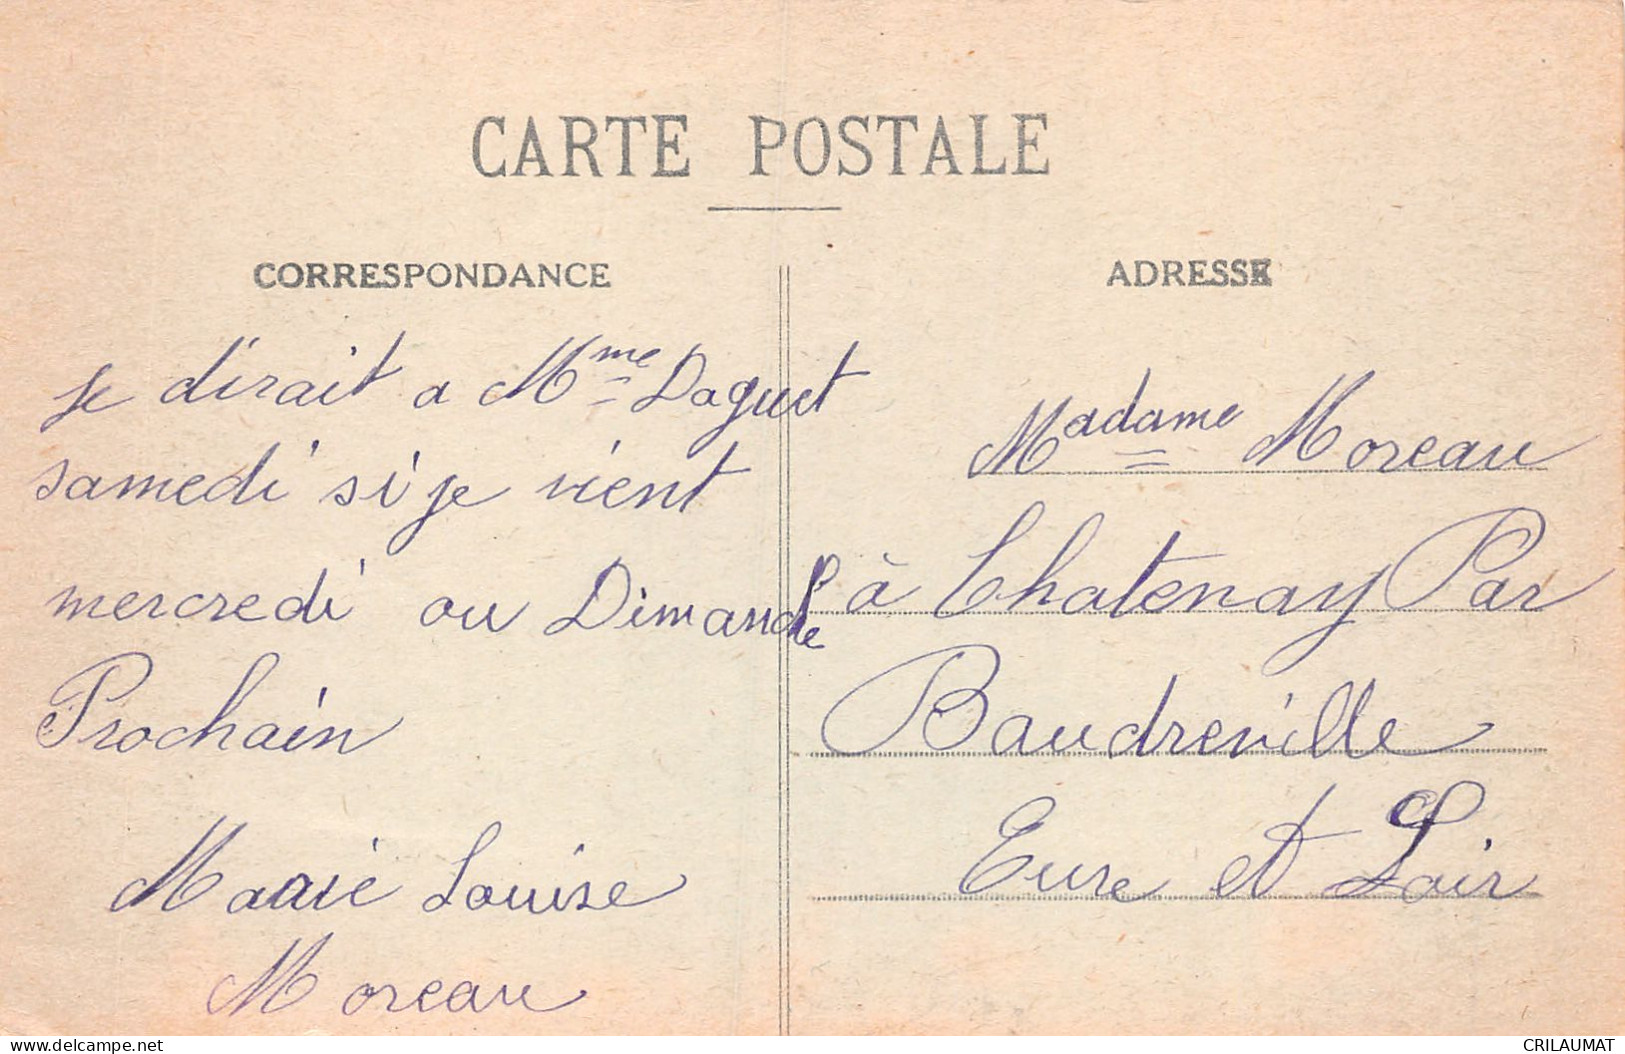 CARTE POSTALE
CORRESPONDANCE
je dirait a Mme Daguet
samedi si je vient
mercredi ou Dimanche
Prochain
Marie Louise
Moreau
ADRESSE
Madame Moreau
à Chatenay Par
Baudreville
Eure et Loir
www.delcampe.net
CRILAUMAT